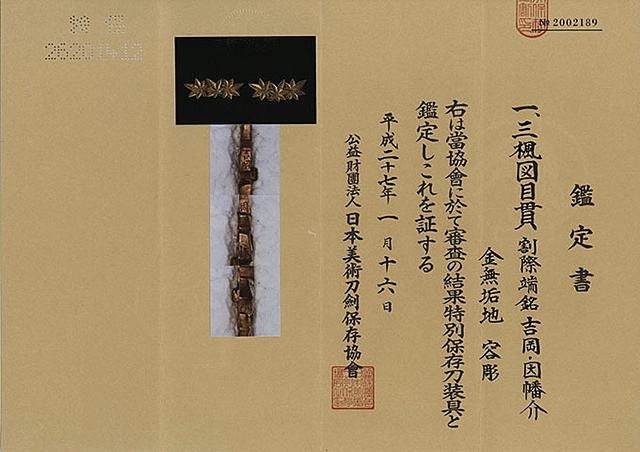 鑑定書
一、三楓図目貫 割際端銘 吉岡・因幡介
金無垢地 容彫
右は當協會に於て審査の結果特別保存刀装具と
鑑定しこれを証する
平成二十七年一月十六日
公益財團法人 日本美術刀劍保存協會
№ 2002189